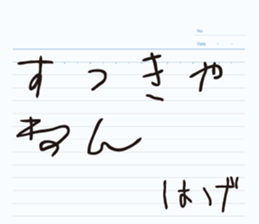 No.
Date
すつきや
ねん
はげ